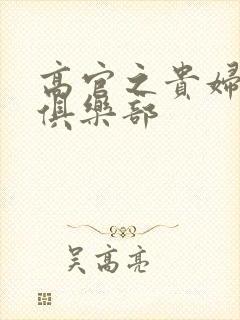 高官之貴婦
俱樂部
吴高亮